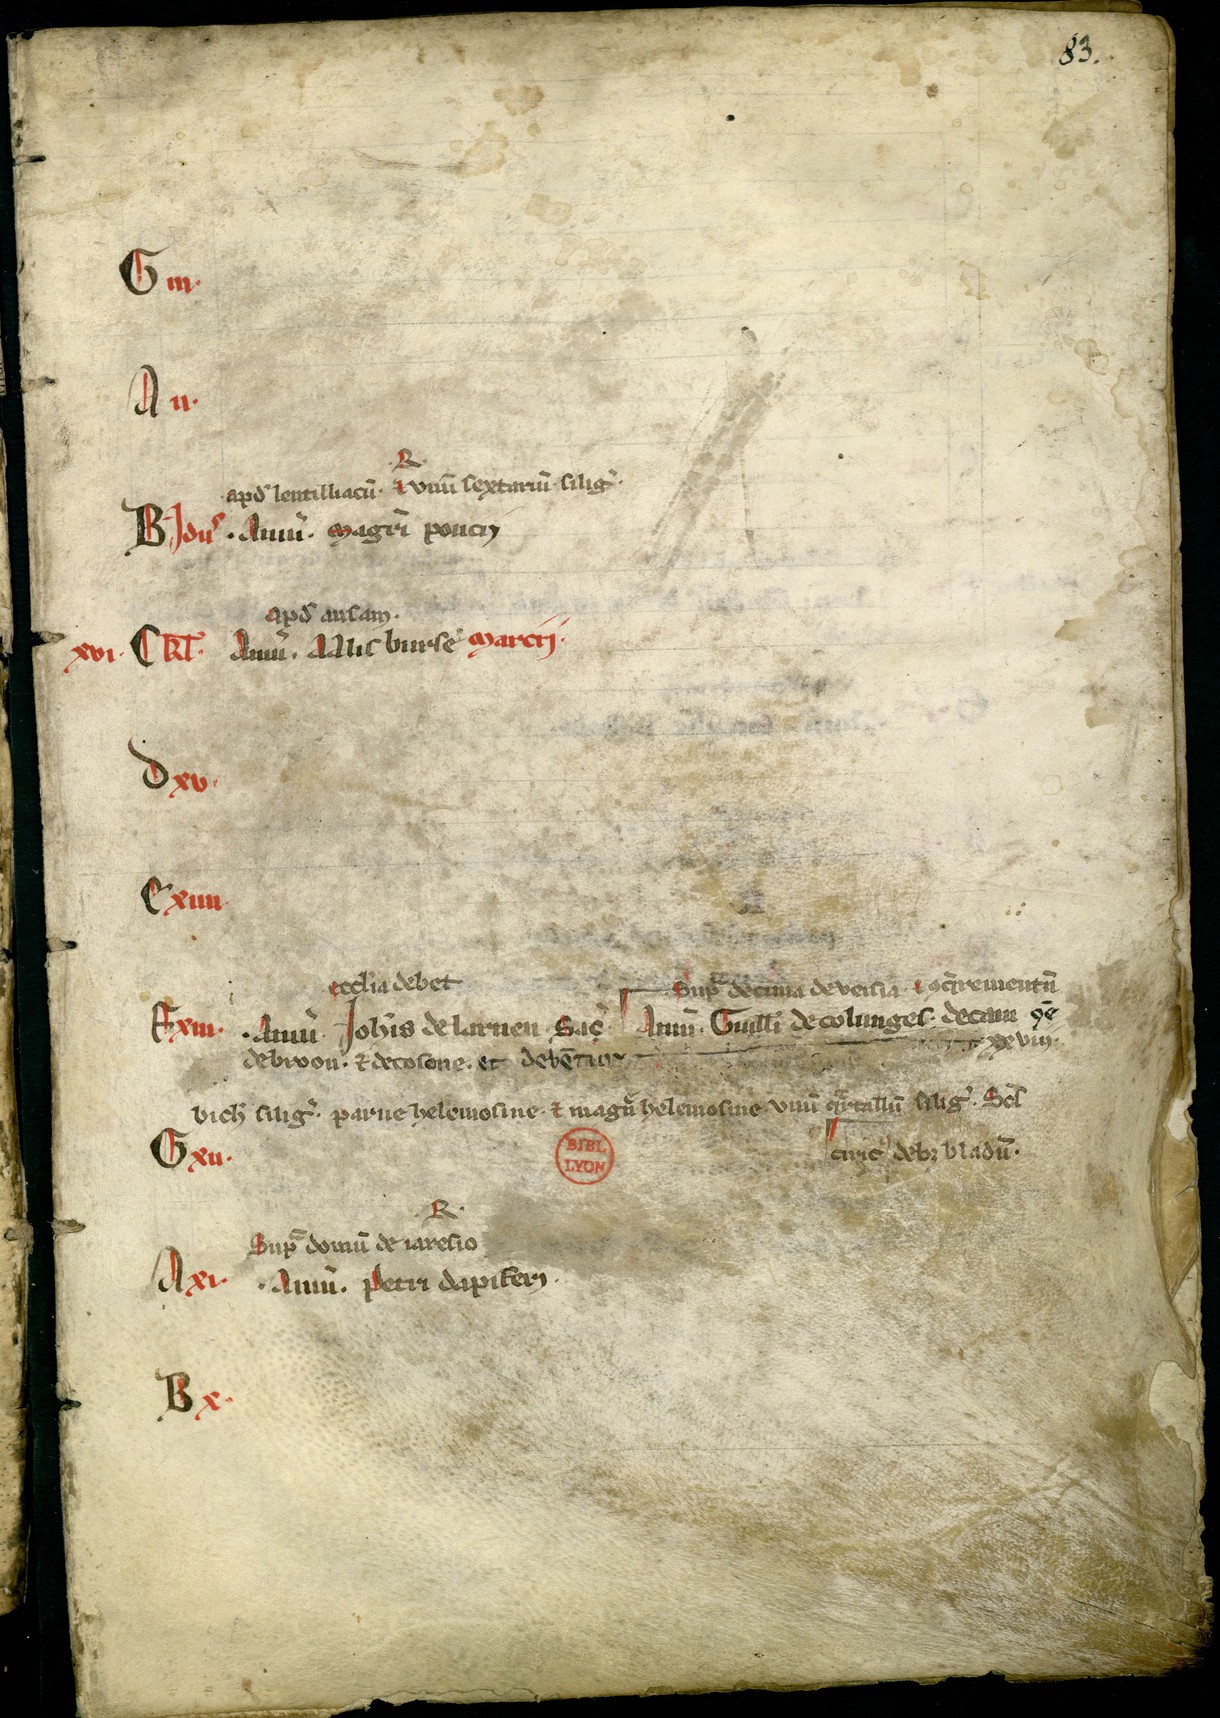 83.
G iii.
A ii.
R
apd lentilliacū. et unū sextariū silig.
B Idus. Anniū. magri poncii
apd ansam.
xvi. C kl. Anniū. Alis burse marcii.
D xv.
E xiiii
ecclia debet Supra decima de versia et
F xiii. Anniū. Johis de larneu. Sac. Anniū. Guilli de colunges. decani
de broon. et de cosone. et debētur
bich silig. parue helemosine et magne helemosine unū silig.
G xii.
BIBL
LYON
bladū.
R
Supra domū de iaresio
A xi. Anniū. petri dapiferi.
B x.